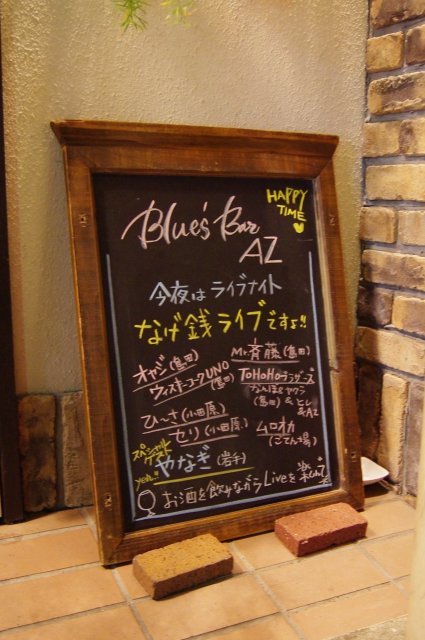 HAPPY
TIME
Blue's Bar
AZ
今夜は ライブナイト
なげ銭ライブですョ!!
オヤジ(島田)
ウィスキーコークUNO
(島田)
Mr.斉藤(島田)
ToHoHoブラザーズ
(島田) & ヒレ
& AZ
ひ〜さ(小田原)
セリ(小田原)
ムロオカ
(ごてん場)
スペシャル
ゲスト
yeh!!
やなぎ(岩手)
お酒を飲みながらLiveを楽しんで